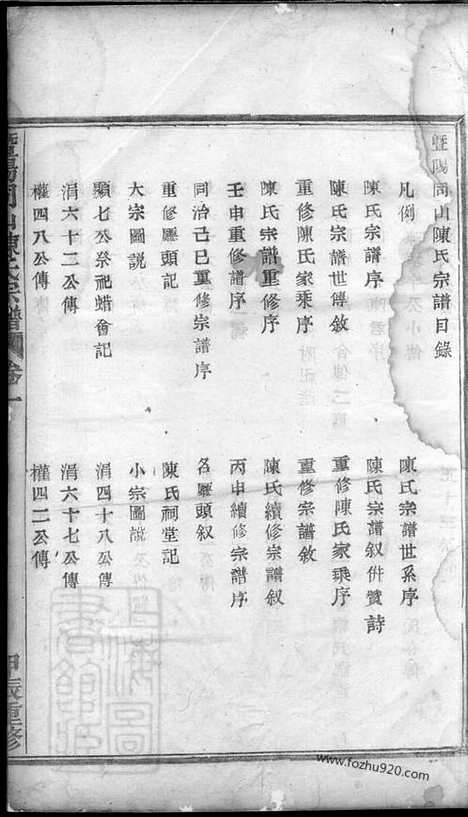 暨陽同山陳氏宗譜目錄
凡例
陳氏宗譜世系序
陳氏宗譜序
陳氏宗譜叙併贊詩
陳氏宗譜世傳敘
重修陳氏家乘序
重修陳氏家乘序
重修宗譜敘
陳氏宗譜重修序
陳氏續修宗譜叙
壬申重修譜序
丙申續修宗譜序
同治己巳重修宗譜序
各廳頭叙
重修廳頭記
陳氏祠堂記
大宗圖說
小宗圖說
顯七公祭祀蜡會記
涓四十八公傳
涓六十三公傳
涓六十七公傳
權四八公傳
權四二公傳
暨陽同山陳氏宗譜
卷一
甲辰重修
上海圖書館藏
www.fozhu920.com